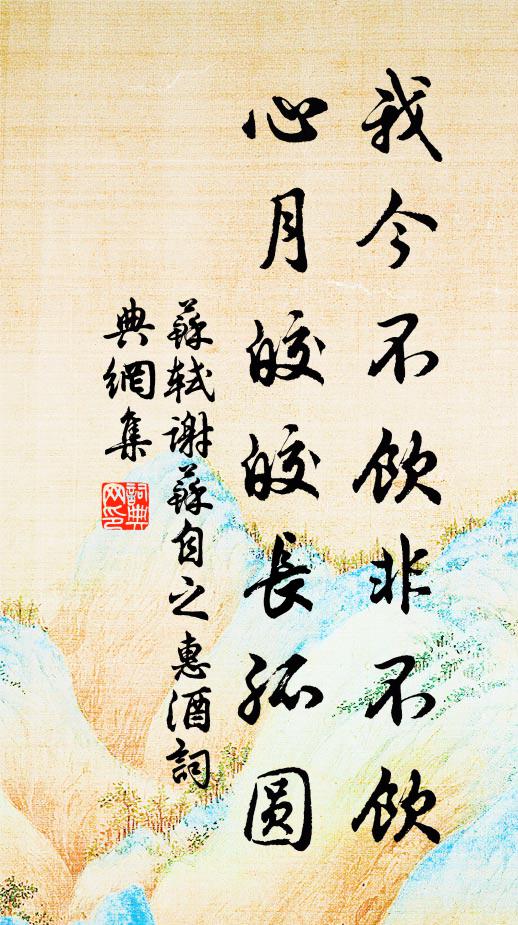 我今不飲非不飲
心月皎皎長孤圆
蘇軾谢蘇自之惠酒詞
典網集
詞典
网印